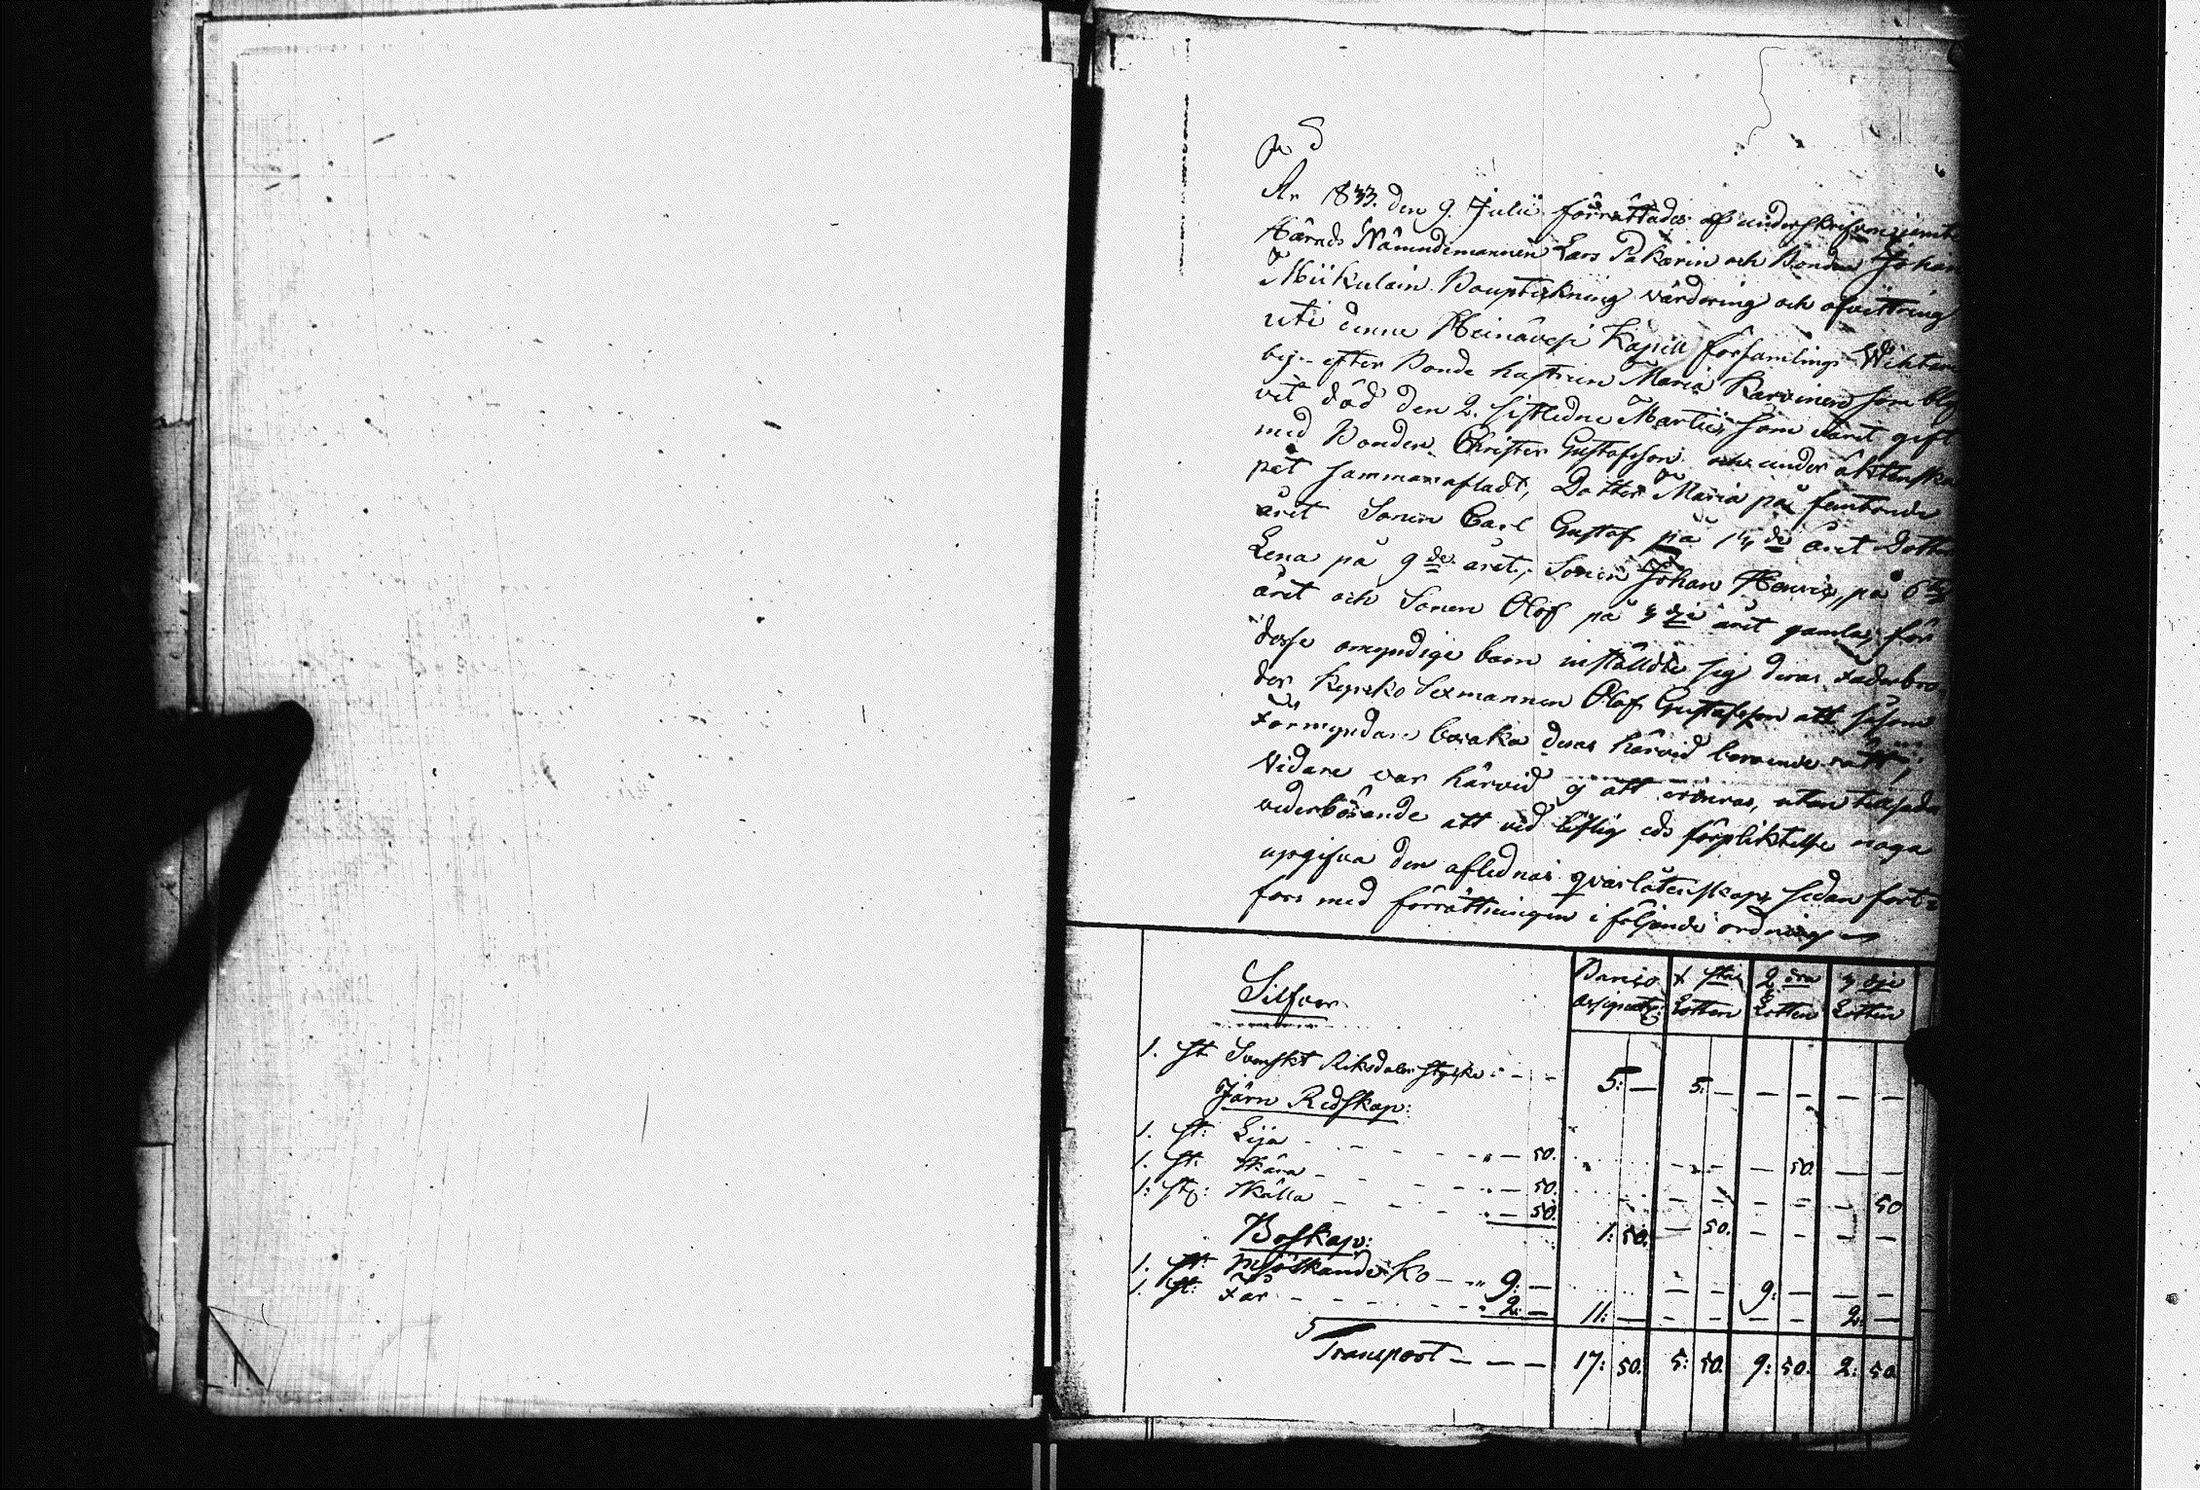 År 1833. den 9. Julii förrättades af underskrifven jemte
Härads Nämndemannen Lars Pakarin och Bonden Johan
Miikulain Boupteckning värdering och afvittring
uti denne Heinävesi Kapell församlings Wihtari
by - efter Bonde hustrun Maria Karvinen som blif
vit död den 2. sistledne Martii, som varit gift
med Bonden Christer Gustafsson och under äktenska
pet sammanafladt, Dotter Maria på femtonde
året Sonen Carl Gustaf på 14de året Dotter
Lena på 9de året, Sonen Johan Henric, på 6te
året och Sonen Olof på 3dje året gamla; för
desse omyndige barn inställde sig deras Faderbro
der Kyrcko Sexmannen Olof Gustafsson att såsom
Förmyndare bevaka deras härvid beroende rätt;
Vidare var härvid ej att erinras, utan tillsades
vederbörande att vid liflig eds förpliktelse noga
upgifva den aflednas qvarlåtenskap, sedan fort-
fors med förrättningen i följande ordning
Silfver Banco Assignat: 1 sta Lotten 2 dra Lotten 3 dje Lotten
1. st Svenskt Riksdaler stycke - - 5: — 5: — — — — —
Järn Redskap:
1. st: Lija - - - - " — 50. — — — 50. — —
1. st. Skära - - - - " — 50. — — — — — 50
1: st: Skälla - - - - " — 50. 1: 50. — 50. — — — —
Boskap:
1. st: Mjölkande Ko - - " 9: — — — 9: — — —
1. st: Får - - - - " 2: — 11: — — — — — 2: —
Transport - - - 17: 50. 5: 50. 9: 50. 2: 50